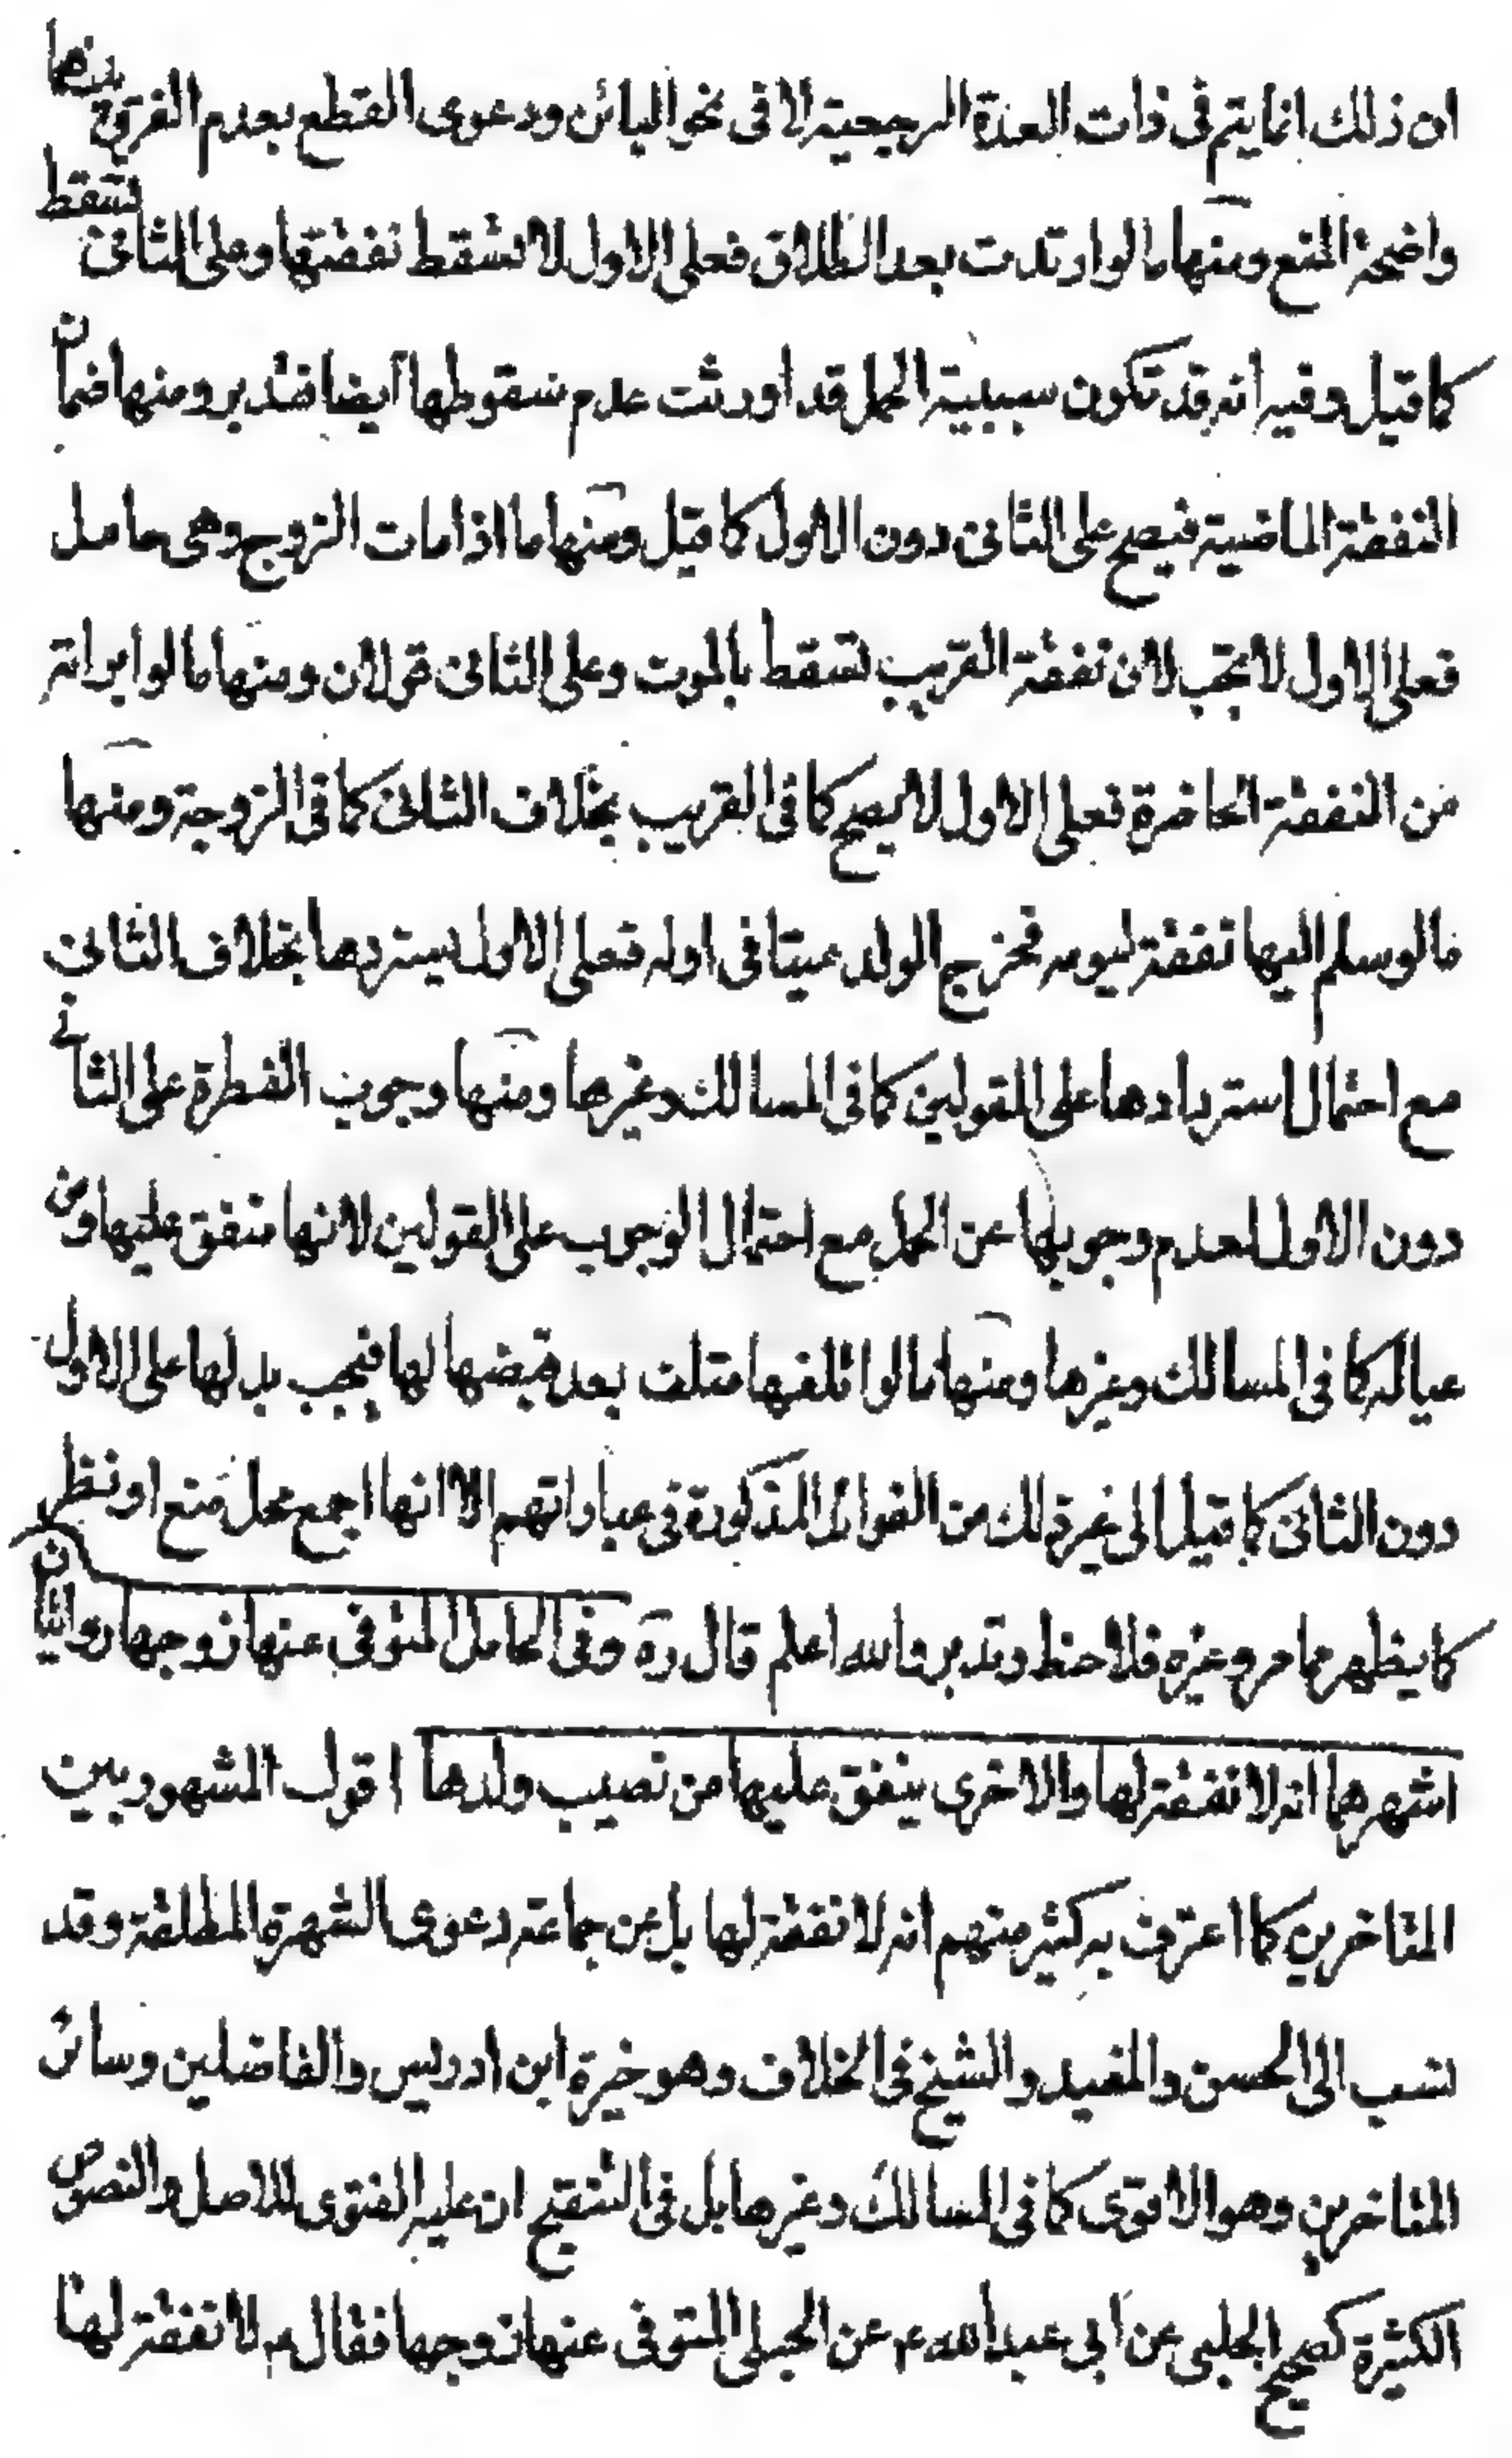 ان ذلك انما يتم فى ذات العدة الرجعية لا فى نحو البائن ودعوى القطع بعدم الفرق بينهما
واضحة المنع ومنها ما لو ارتدت بعد الطلاق فعلى الاول لا تسقط نفقتها وعلى الثانى تسقط
كما قيل وفيه انه قد تكون سببية الحمل قد اورثت عدم سقوطها ايضا فتدبر ومنها ضمان
النفقة الماضية فيصح على الثانى دون الاول كما قيل ومنها ما اذا مات الزوج وهى حامل
فعلى الاول لا تجب لان نفقة القريب تسقط بالموت وعلى الثانى قولان ومنها ما لو ابراته
من النفقة الحاضرة فعلى الاول لا يصح كما فى القريب بخلاف الثانى كما فى الزوجة ومنها
ما لو سلم اليها نفقة ليومه فخرج الولد ميتا فى اوله فعلى الاول يستردها بخلاف الثانى
مع احتمال استردادها على القولين كما فى المسالك وغيرها ومنها وجوب الفطرة على الثانى
دون الاول لعدم وجوبها عن الحمل مع احتمال الوجوب على القولين لانها منفق عليها ومن
عياله كما فى المسالك وغيرها ومنها ما لو اتلفها متلف بعد قبضها لها فيجب بدلها على الاول
دون الثانى كما قيل الى غير ذلك من الفوائد المذكورة فى عباراتهم الا انها اجمع محل منع او نظر
كما يظهر مما مر وغيره فلاحظ وتدبر والله اعلم قال ره وفى الحامل المتوفى عنها زوجها روايتان
اشهرهما انه لا نفقة لها والاخرى ينفق عليها من نصيب ولدها اقول المشهور بين
المتاخرين كما اعترف به كثير منهم انه لا نفقة لها بل عن جماعة دعوى الشهرة المطلقة وقد
نسب الى الحسن والمفيد والشيخ فى الخلاف وهو خيرة ابن ادريس والفاضلين وسائر
المتاخرين وهو الاقوى كما فى المسالك وغيرها بل فى التنقيح ان عليه الفتوى للاصل والنصوص
الكثيرة كصحيح الحلبى عن ابى عبد الله ع عن الحبلى المتوفى عنها زوجها فقال ع لا نفقة لها